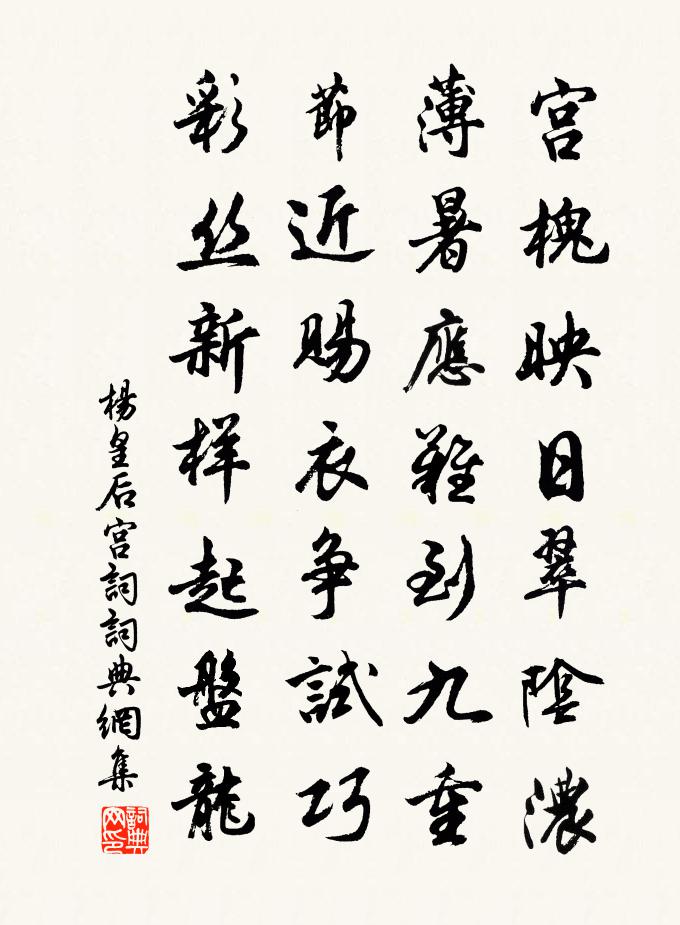 宫槐映日翠陰濃
薄暑應難到九重
節近賜衣争試巧
彩丝新样起盤龍
楊皇后宫詞詞典網集
詞典网印